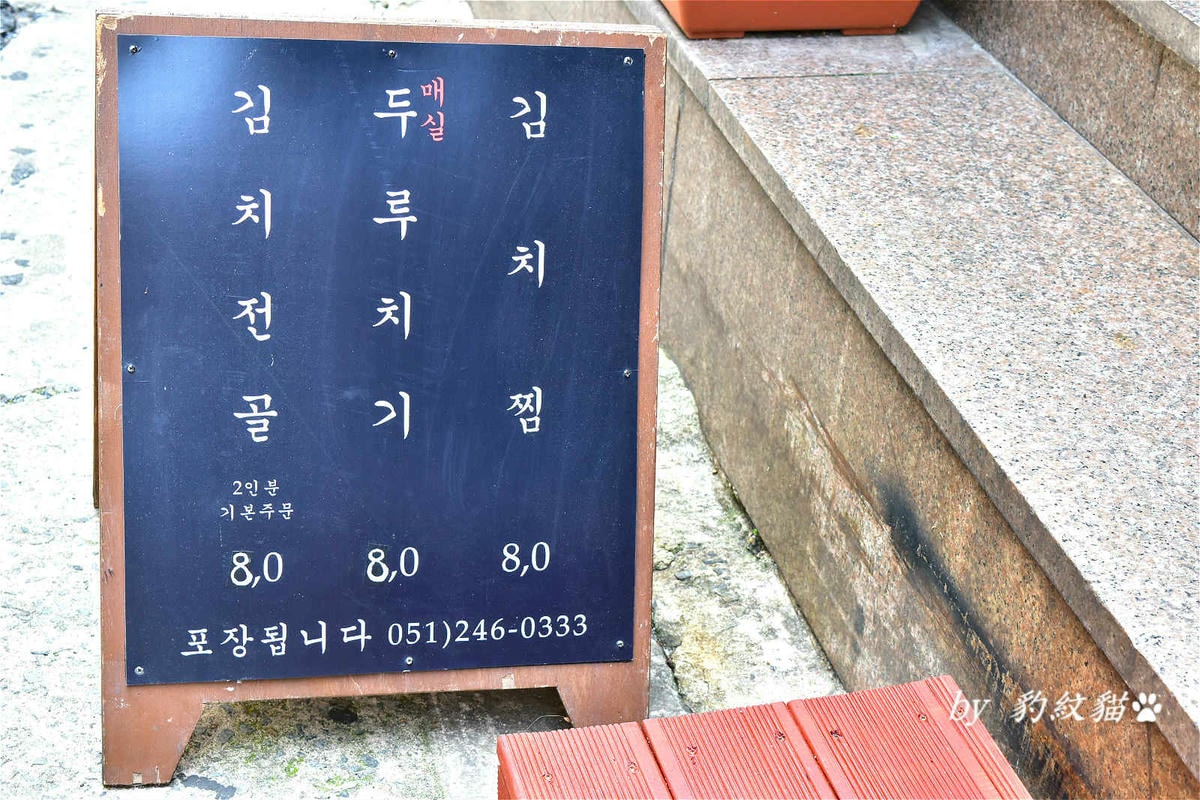 김치전골
2인분
기본주문
8,0
매실
두루치기
8,0
김치찜
8,0
포장됩니다 051)246-0333
by 豹紋貓